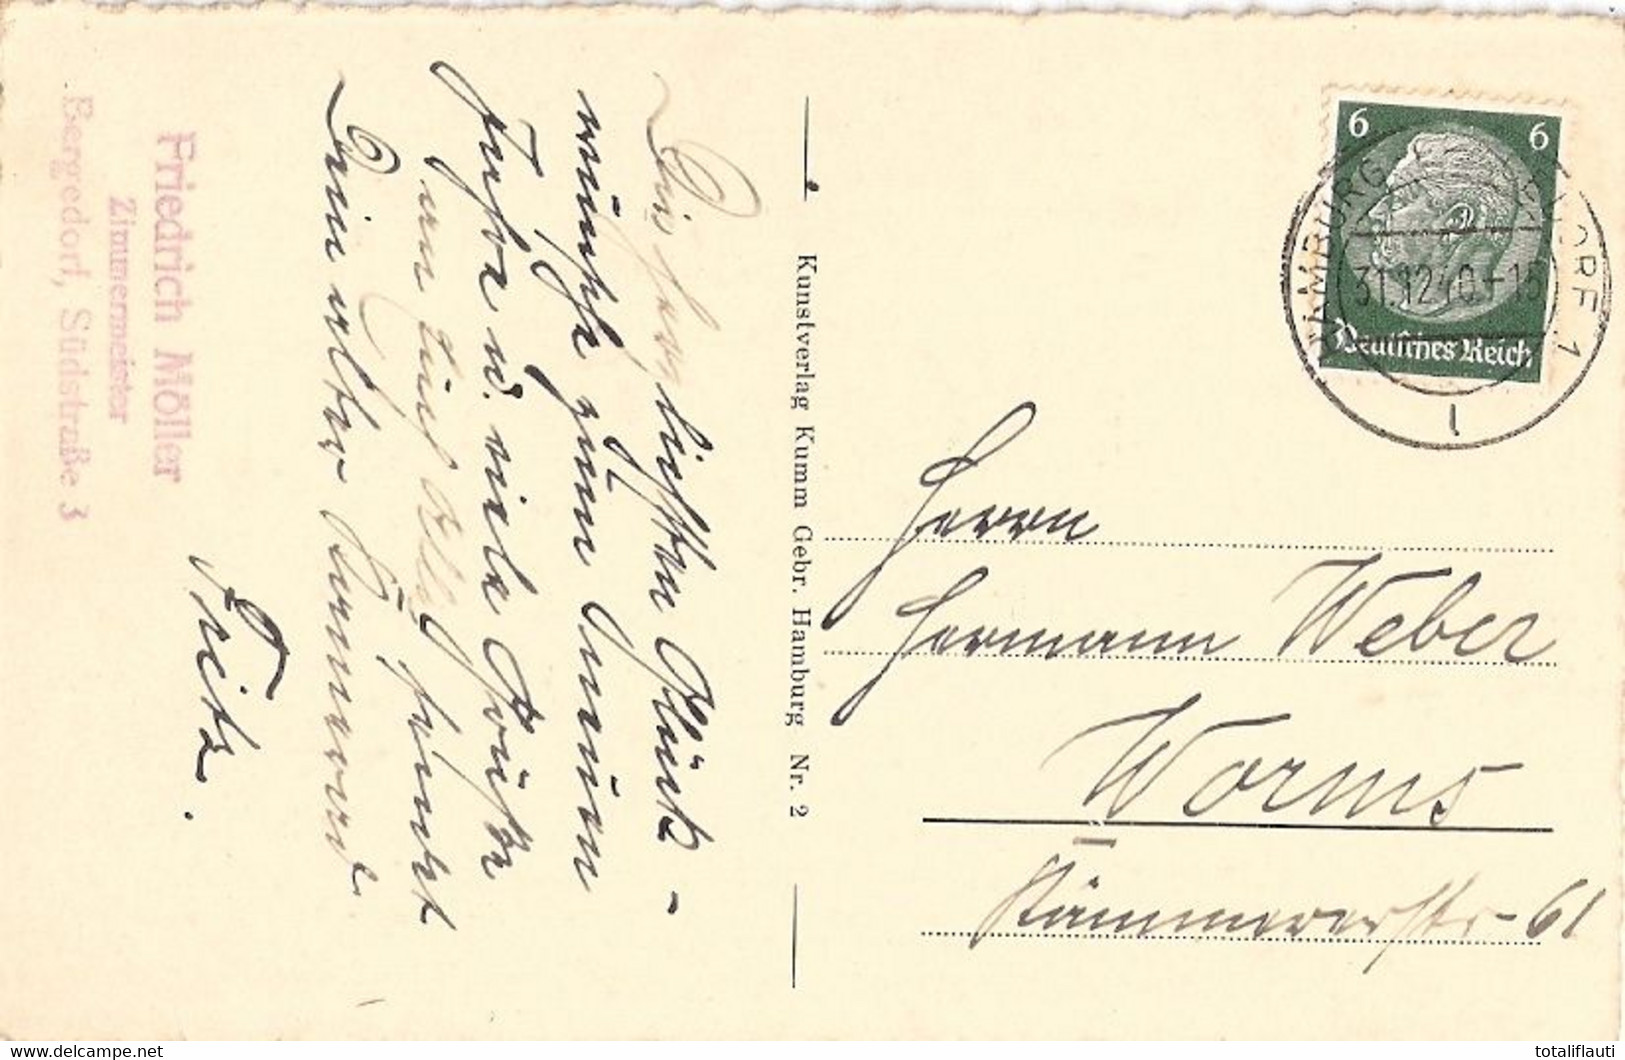 Friedrich Möller
Zimmermeister
Bergedorf, Südstraße 3
Die herzlichsten Glück-
wünsche zum Neuen
Jahre u. viele Grüße
an Euch Alle, sendet
Dein alter Kamerad
Fritz.
Kunstverlag Kumm Gebr. Hamburg Nr. 2
6 6
Deutsches Reich
HAMBURG-BERGEDORF 1
31.12.40.-15
l
Herrn
Hermann Weber
Worms
Kämmererstr. 61
delcampe.net
totaliflauti